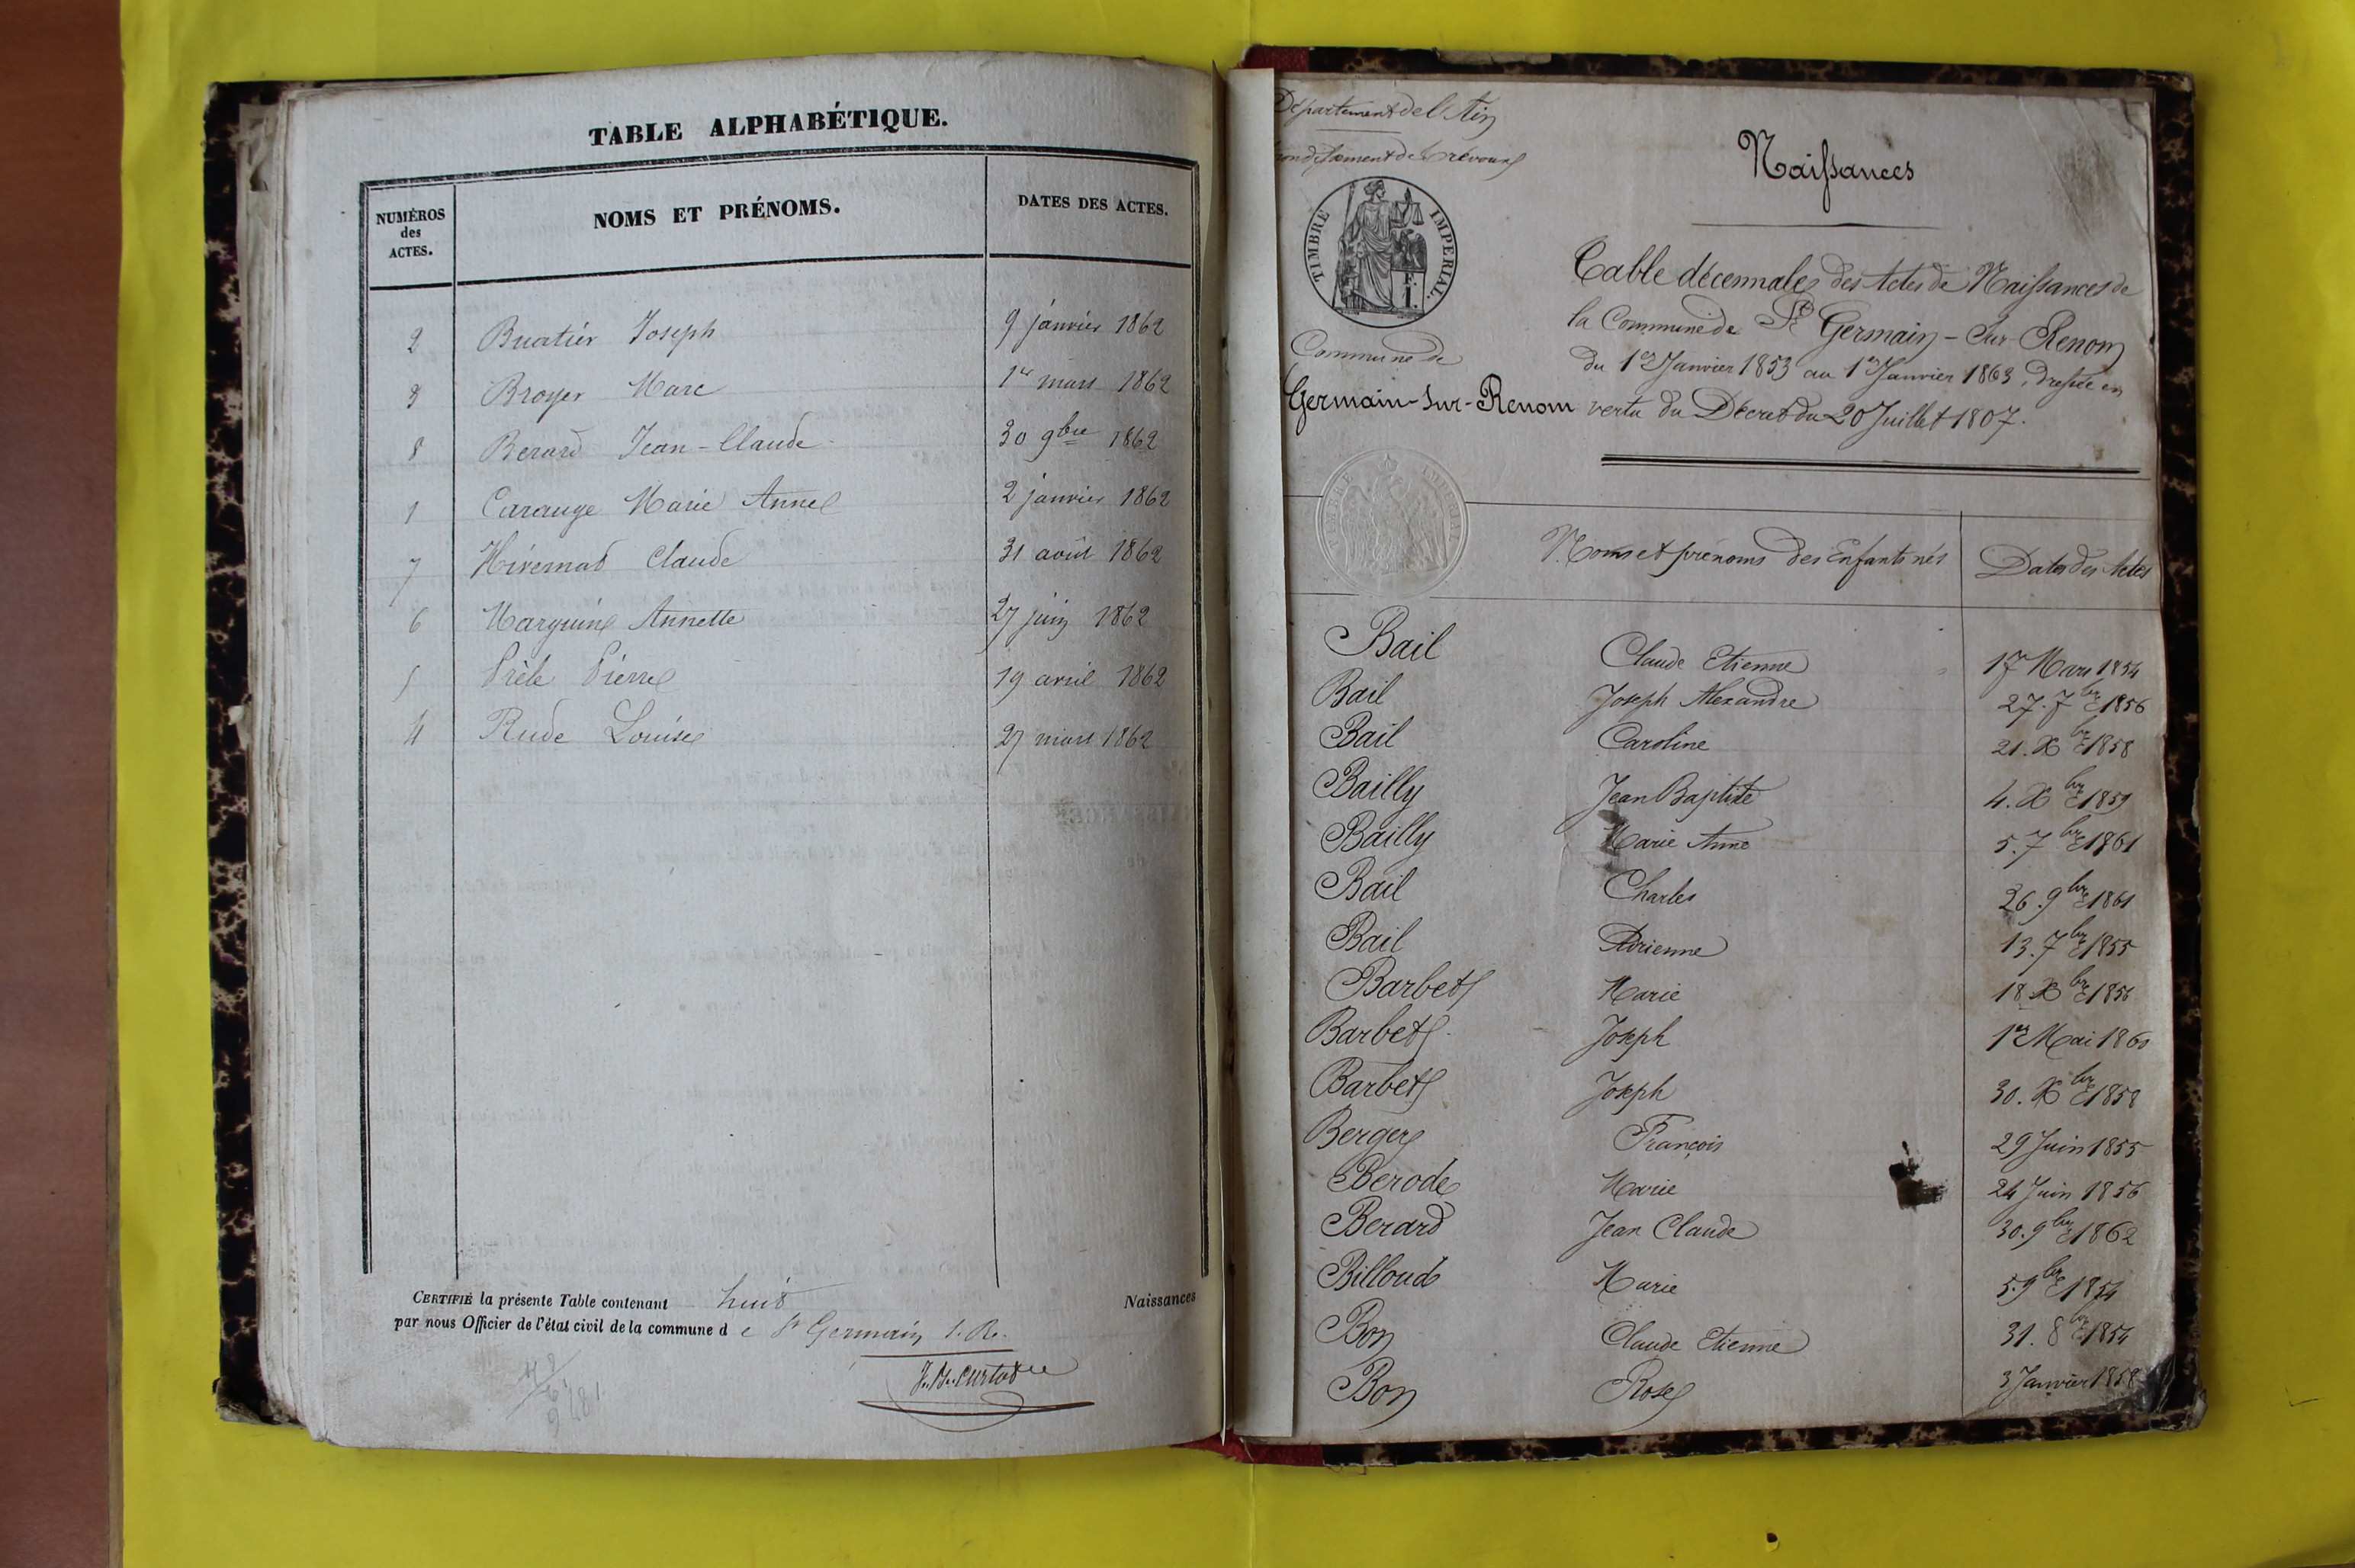 TABLE ALPHABÉTIQUE.
NUMÉROS des ACTES. NOMS ET PRÉNOMS. DATES DES ACTES.
2 Buatier Joseph 9 janvier 1862
3 Broyer Marc 1er mars 1862
8 Berard Jean-Claude 30 9bre 1862
1 Carauge Marie Anne 2 janvier 1862
7 Hivernat Claude 31 août 1862
6 Marguin Annette 27 juin 1862
5 Prèle Pierre 19 avril 1862
4 Rude Louise 27 mars 1862
CERTIFIÉ la présente Table contenant huit Naissances
par nous Officier de l'état civil de la commune d e St Germain s. R.
Département de l'Ain
ondissement de Trévoux
Naissances
TIMBRE IMPÉRIAL.
Table décennale des Actes de Naissances de
la Commune de St Germain-Sur-Renom
du 1er Janvier 1853 au 1er Janvier 1863, dressée en
vertu du Décret du 20 Juillet 1807.
Commune de
Germain-Sur-Renom
Noms et prénoms des Enfants nés Dates des Actes
Bail Claude Etienne 17 Mars 1854
Bail Joseph Alexandre 27. 7bre 1856
Bail Caroline 21. Xbre 1858
Bailly Jean Baptiste 4. Xbre 1859
Bailly Marie Anne 5. 7bre 1861
Bail Charles 26. 9bre 1861
Bail Adrienne 13. 7bre 1855
Barbet Marie 18 Xbre 1856
Barbet Joseph 1er Mai 1860
Barbet Joseph 30. Xbre 1858
Berger François 29 Juin 1855
Berode Marie 24 Juin 1856
Berard Jean Claude 30. 9bre 1862
Billoud Marie 5. 9bre 1854
Bon Claude Etienne 31. 8bre 1854
Bon Rose 3 Janvier 1858